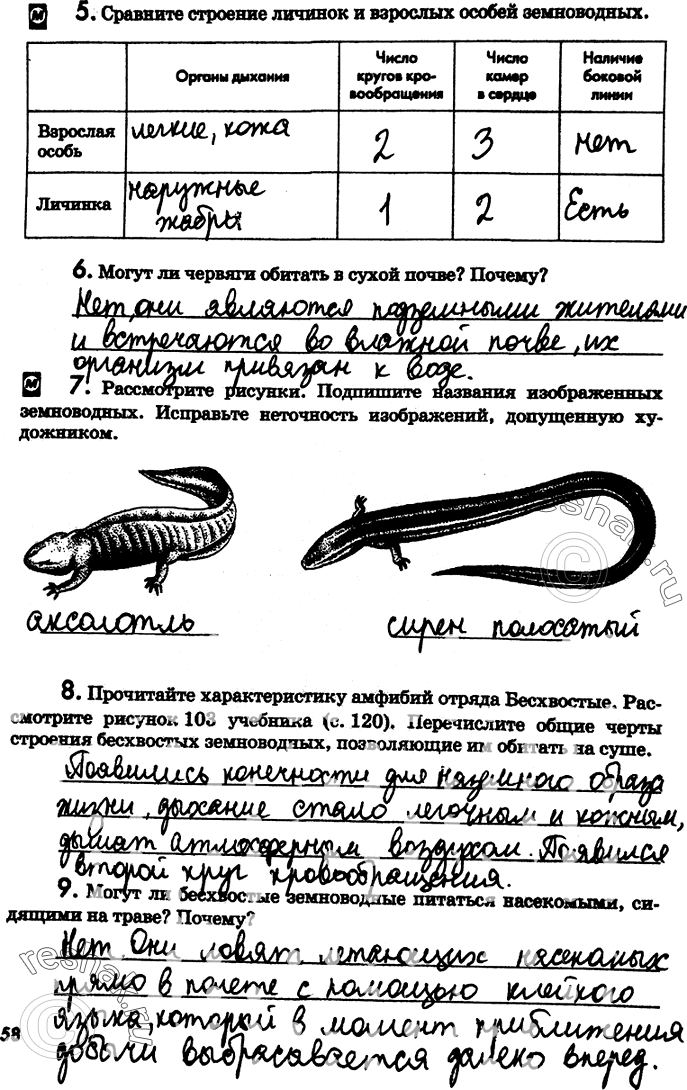 5. Сравните строение личинок и взрослых особей земноводных.
Органы дыхания
Число кругов кро-вообращения
Число камер в сердце
Наличие боковой линии
Взрослая особь
легкие, кожа
2
3
нет
Личинка
наружные жабры
1
2
Есть
6. Могут ли червяги обитать в сухой почве? Почему?
Нет, они являются подземными жителями
и встречаются во влажной почве, их
организм привязан к воде.
7. Рассмотрите рисунки. Подпишите названия изображенных
земноводных. Исправьте неточность изображений, допущенную ху-
дожником.
аксолотль
сирен полосатый
8. Прочитайте характеристику амфибий отряда Бесхвостые. Рас-
смотрите рисунок 103 учебника (с. 120). Перечислите общие черты
строения бесхвостых земноводных, позволяющие им обитать на суше.
Появились конечности для наземного образа
жизни, дыхание стало легочным и кожным,
дышат атмосферным воздухом. Появился
второй круг кровообращения.
9. Могут ли бесхвостые земноводные питаться насекомыми, си-
дящими на траве? Почему?
Нет. Они ловят летающих насекомых
прямо в полете с помощью клейкого
языка, который в момент приближения
58
добычи выбрасывается далеко вперед.